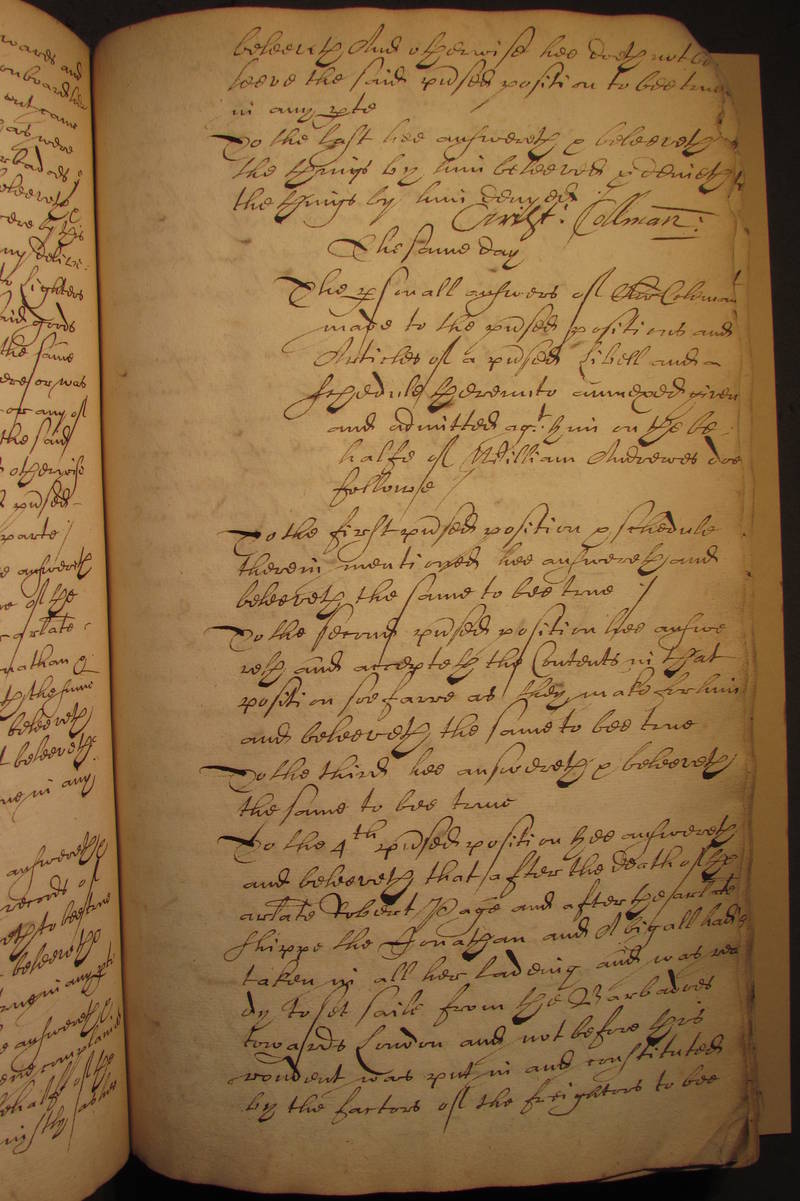 wards and
onboard her
out came
as were
rbados
beleeveth
cere by this
ny delive:
to Lighters
aid goods
the same
ere or was
or any of
the said
otherwise
pŭsed
parte /
answereth
of the
artate
nathan
the same
beleeveth
beleeveth
ue in any
answereth
records of
to bee true
beleeveth
rue in any pte
answereth
complained
behalfe of the
beleeveth And otherwise hee doeth not be
leeve the said pŭsed position to bee true
in any pte
To the last hee answereth & beleeveth
the things by him beleeved & denieth
the things by him denyed
Colman:
The same day
The psonall answers of Coleman
made to the pŭsed positions and
Articles of a pŭsed Libell and a
schedule thereunto annexed given
and admitted agt. him on the be:
halfe of William Andrewes doe
followe /
To the first pŭsed position & schedule
therein mentioned hee answereth and
beleeveth the same to bee true /
To the second pŭsed position hee answe
reth and accepteth the Contents in that
position soe farre as they make for him
and beleeveth the same to bee true
To the third hee answereth & beleeveth
the same to bee true
To the 4th pŭsed position hee answereth
and beleeveth that after the death of the
artate Robert Page and after the artate
shippe the Jonathan and Abigall had
taken in all her ladeing and was rea
dy to set saile from the Barbadoes
towards London and not before this
rondent was put in and constituted
by the factors of the freighters to bee